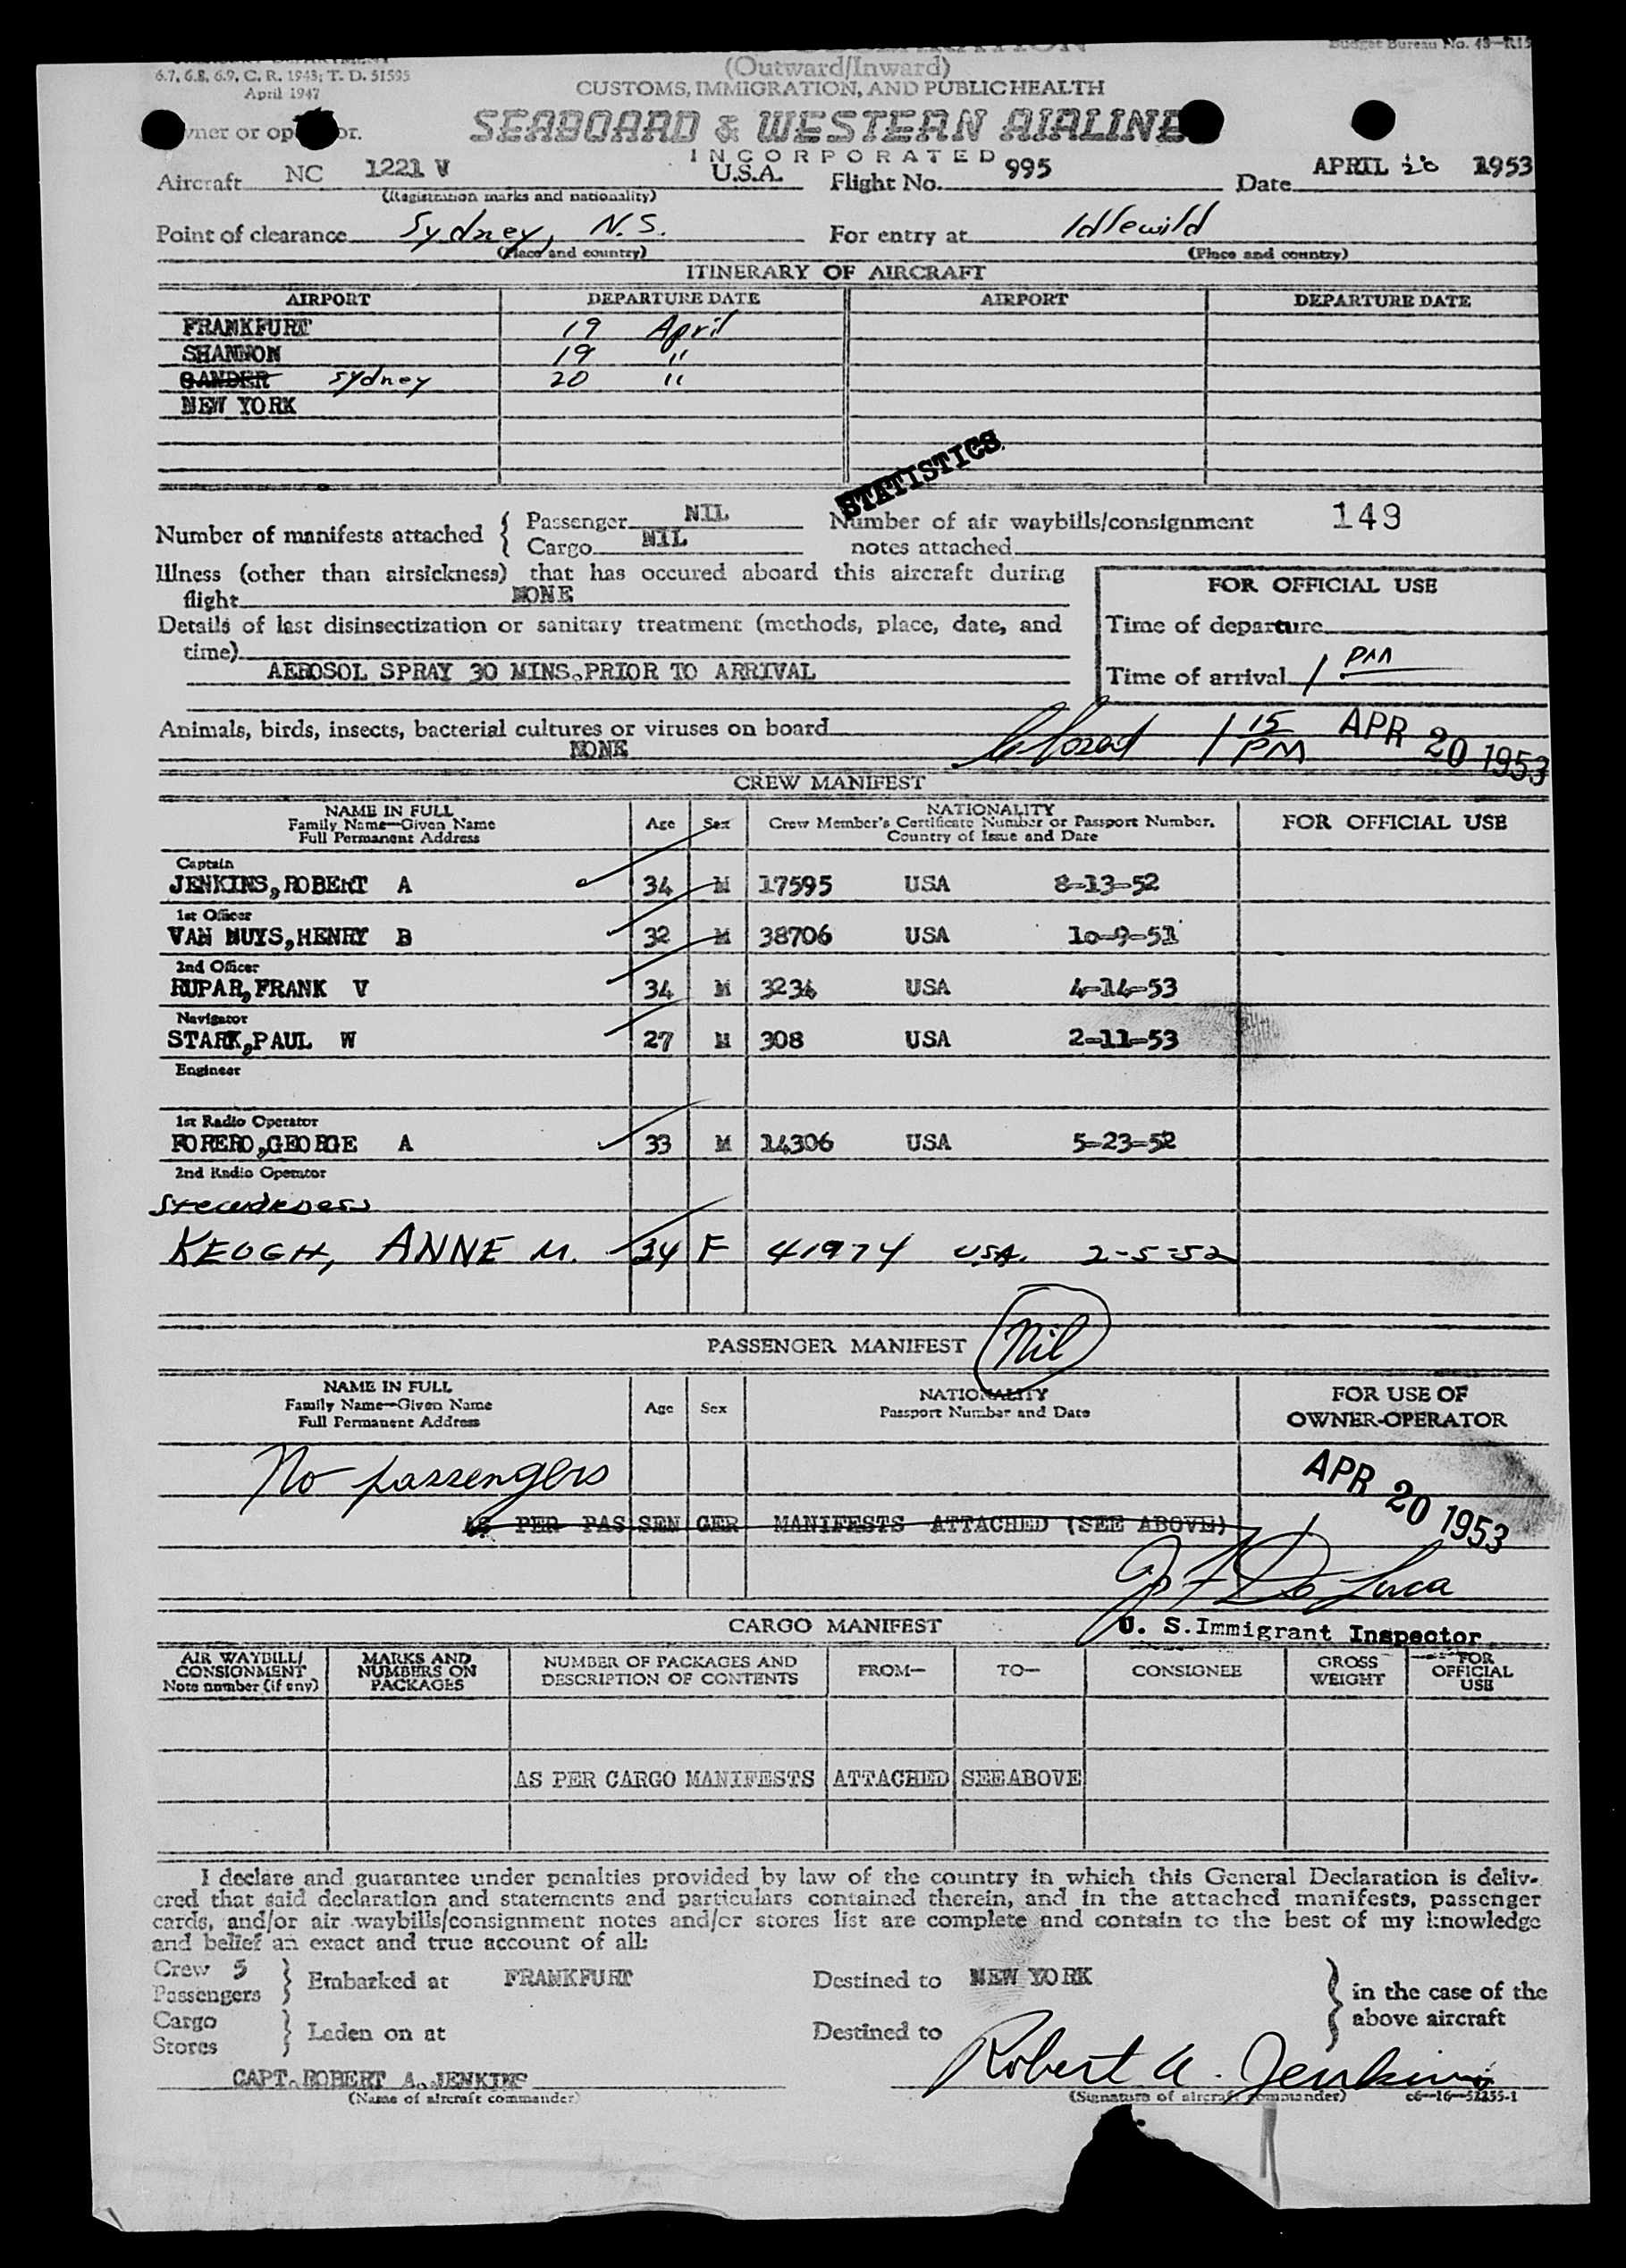 Budget Bureau No. 43—R15
6.7, 6.8, 6.9, C. R. 1943; T. D. 51595
April 1947
(Outward/Inward)
CUSTOMS, IMMIGRATION, AND PUBLIC HEALTH
SEABOARD & WESTERN AIRLINE
INCORPORATED
Aircraft NC 1221 V U.S.A. Flight No. 995 Date APRIL 20 1953
(Registration marks and nationality)
Point of clearance Sydney, N.S. For entry at Idlewild
(Place and country) (Place and country)
ITINERARY OF AIRCRAFT
AIRPORT DEPARTURE DATE AIRPORT DEPARTURE DATE
FRANKFURT 19 April
SHANNON 19 "
GANDER Sydney 20 "
NEW YORK
STATISTICS
Number of manifests attached { Passenger NIL Number of air waybills/consignment 149
Cargo NIL notes attached
Illness (other than airsickness) that has occured aboard this aircraft during
flight NONE
FOR OFFICIAL USE
Details of last disinsectization or sanitary treatment (methods, place, date, and
time)
Time of departure
AEROSOL SPRAY 30 MINS.PRIOR TO ARRIVAL
Time of arrival 1 PM
Animals, birds, insects, bacterial cultures or viruses on board
NONE
1 15 PM APR 20 1953
CREW MANIFEST
NAME IN FULL
Family Name—Given Name
Full Permanent Address
Age Sex
NATIONALITY
Crew Member's Certificate Number or Passport Number,
Country of Issue and Date
FOR OFFICIAL USE
Captain
JENKINS,ROBERT A 34 M 17595 USA 8-13-52
1st Officer
VAN NUYS,HENRY B 32 M 38706 USA 10-9-51
2nd Officer
RUPAR,FRANK V 34 M 3234 USA 4-14-53
Navigator
STARK,PAUL W 27 M 308 USA 2-11-53
Engineer
1st Radio Operator
FORERO,GEORGE A 33 M 14306 USA 5-23-52
2nd Radio Operator
Stewardess
KEOGH, ANNE M. 34 F 41974 USA. 2-5-52
PASSENGER MANIFEST Nil
NAME IN FULL
Family Name—Given Name
Full Permanent Address
Age Sex
NATIONALITY
Passport Number and Date
FOR USE OF
OWNER-OPERATOR
No passengers
APR 20 1953
AS PER PASSENGER MANIFESTS ATTACHED (SEE ABOVE)
CARGO MANIFEST
U. S. Immigrant Inspector
AIR WAYBILL/
CONSIGNMENT
Note number (if any)
MARKS AND
NUMBERS ON
PACKAGES
NUMBER OF PACKAGES AND
DESCRIPTION OF CONTENTS
FROM— TO— CONSIGNEE
GROSS
WEIGHT
FOR
OFFICIAL
USE
AS PER CARGO MANIFESTS ATTACHED SEE ABOVE
I declare and guarantee under penalties provided by law of the country in which this General Declaration is deliv-
ered that said declaration and statements and particulars contained therein, and in the attached manifests, passenger
cards, and/or air waybills/consignment notes and/or stores list are complete and contain to the best of my knowledge
and belief an exact and true account of all:
Crew 5
Passengers } Embarked at FRANKFURT Destined to NEW YORK } in the case of the
above aircraft
Cargo
Stores } Laden on at Destined to
CAPT. ROBERT A. JENKINS Robert A. Jenkins
(Name of aircraft commander) (Signature of aircraft commander) c6—16—52255-1